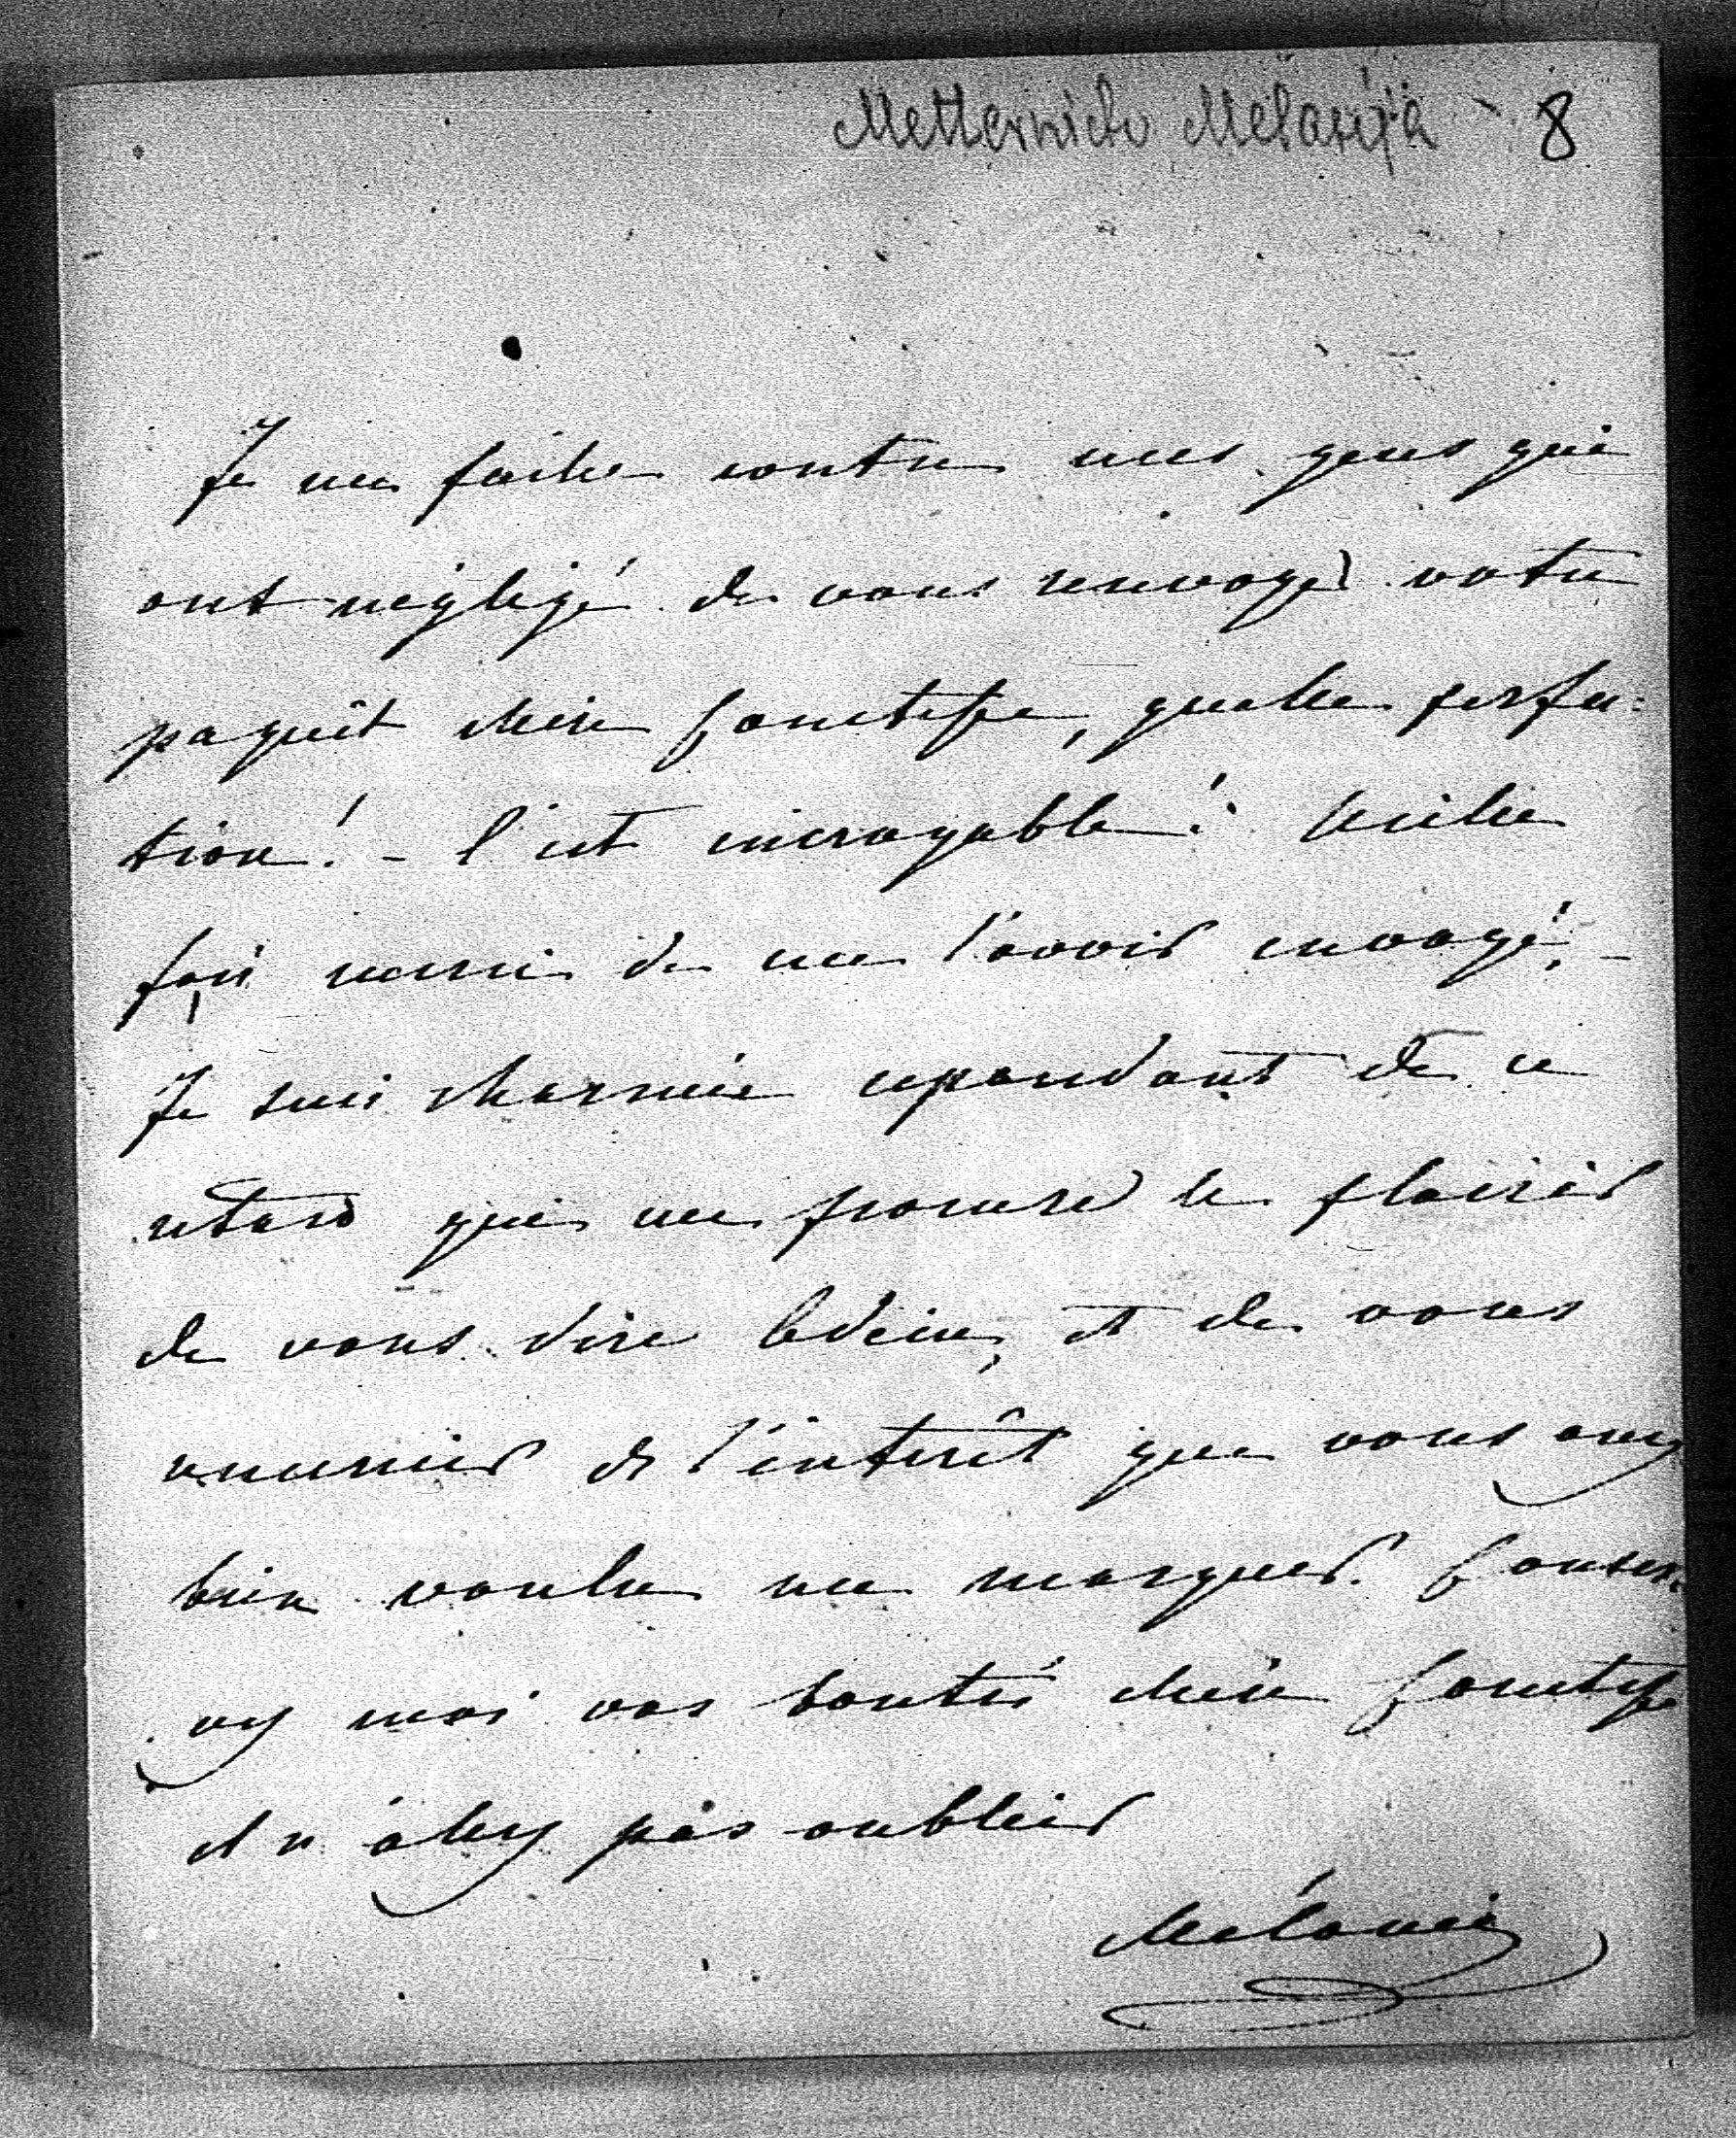 Metternich Melanja 8
Je me fache contre mes gens qui
ont négligé de vous renvoyer votre
paquêt chère Comtesse, quelle perfec=
tion! - C'est incroyable! Mille
fois merci de me l'avoir envoyé, -
Je suis charmée cependant de ce
retard qui me procure le plaisir
de vous dire adieu, et de vous
remercier de l'interêt que vous avez
bien voulu me marquer. Conser=
vez moi vos bontés chère Comtesse
et n'allez pas oublier
Mélanie